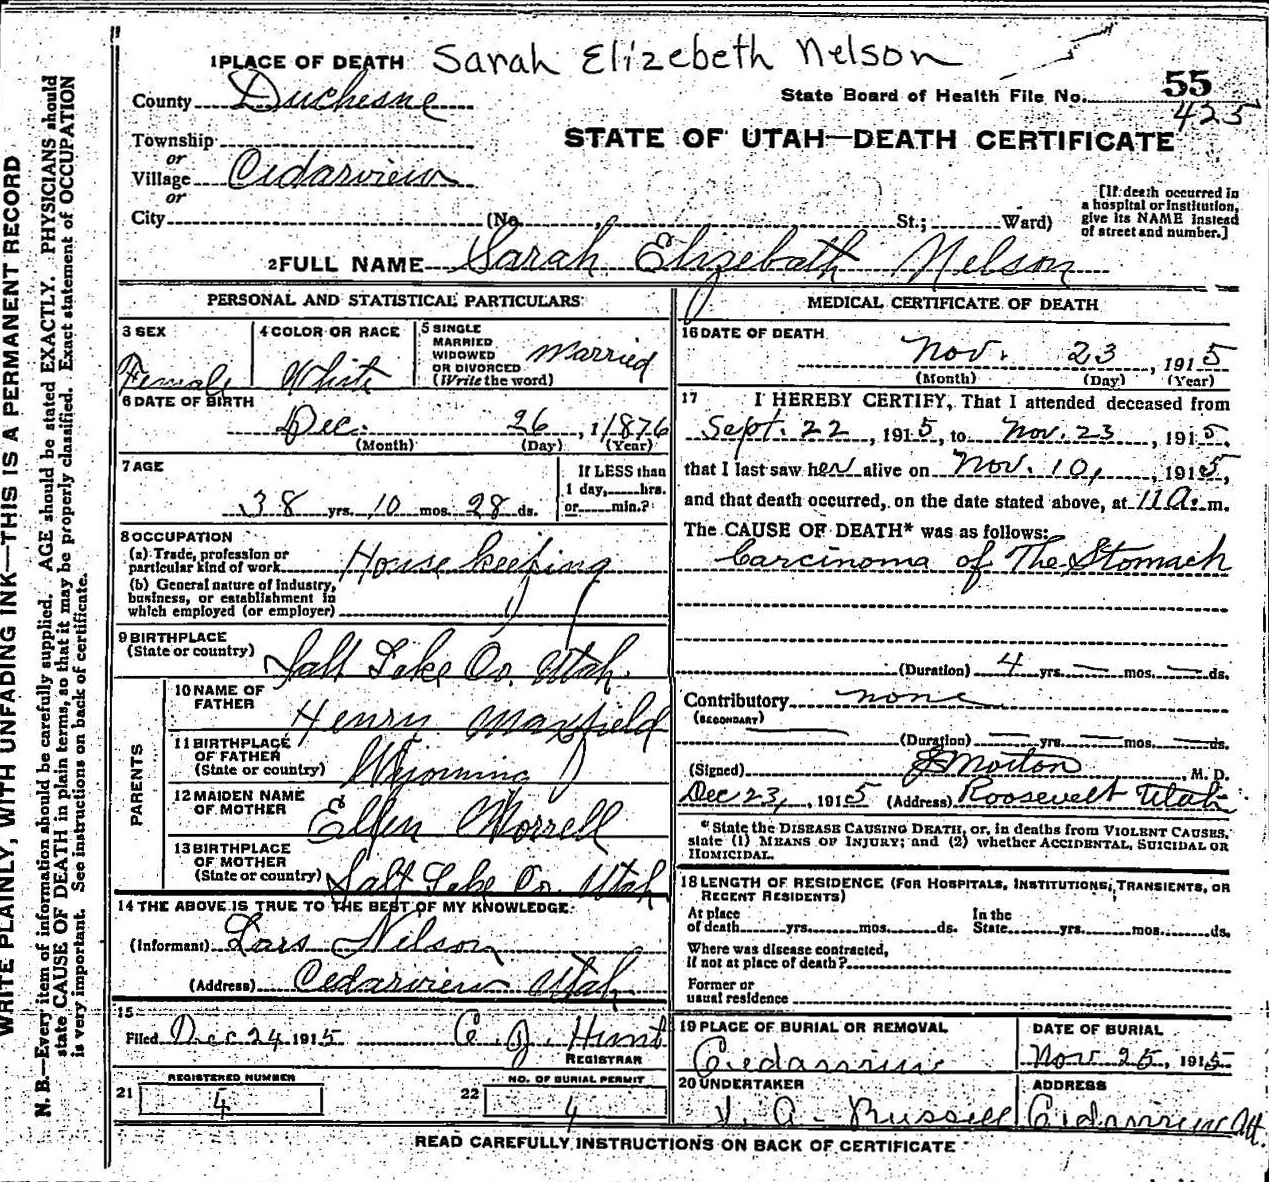 1 PLACE OF DEATH Sarah Elizebeth Nelson
County Duchesne
State Board of Health File No. 55
425
STATE OF UTAH—DEATH CERTIFICATE
Township
or
Village Cedarview
or
City (No. , St.; Ward)
[If death occurred in a hospital or institution, give its NAME instead of street and number.]
2 FULL NAME Sarah Elizebath Nelson
PERSONAL AND STATISTICAL PARTICULARS
3 SEX Female
4 COLOR OR RACE White
5 SINGLE MARRIED WIDOWED OR DIVORCED (Write the word) Married
6 DATE OF BIRTH
Dec. 26, 1876
(Month) (Day) (Year)
7 AGE
38 yrs. 10 mos. 28 ds.
If LESS than 1 day, hrs. or min.?
8 OCCUPATION
(a) Trade, profession or particular kind of work House keeping
(b) General nature of industry, business, or establishment in which employed (or employer)
9 BIRTHPLACE
(State or country) Salt Lake Co. Utah.
PARENTS
10 NAME OF FATHER Henry Maxfield
11 BIRTHPLACE OF FATHER (State or country) Wyoming
12 MAIDEN NAME OF MOTHER Ellen Worrell
13 BIRTHPLACE OF MOTHER (State or country) Salt Lake Co. Utah
14 THE ABOVE IS TRUE TO THE BEST OF MY KNOWLEDGE.
(Informant) Lars Nelson
(Address) Cedarview Utah
15
Filed Dec 24 1915 C. J. Hunt
REGISTRAR
21 REGISTERED NUMBER 4
22 NO. OF BURIAL PERMIT 4
MEDICAL CERTIFICATE OF DEATH
16 DATE OF DEATH
Nov. 23, 1915
(Month) (Day) (Year)
17 I HEREBY CERTIFY, That I attended deceased from
Sept. 22, 1915, to Nov. 23, 1915,
that I last saw her alive on Nov. 10, 1915,
and that death occurred, on the date stated above, at 11 a. m.
The CAUSE OF DEATH* was as follows:
Carcinoma of The Stomach
(Duration) 4 yrs. — mos. — ds.
Contributory none
(SECONDARY)
(Duration) — yrs. — mos. — ds.
(Signed) J Morton, M. D.
Dec 23, 1915 (Address) Roosevelt Utah
*State the DISEASE CAUSING DEATH, or, in deaths from VIOLENT CAUSES, state (1) MEANS OF INJURY; and (2) whether ACCIDENTAL, SUICIDAL OR HOMICIDAL.
18 LENGTH OF RESIDENCE (FOR HOSPITALS, INSTITUTIONS, TRANSIENTS, OR RECENT RESIDENTS)
At place of death yrs. mos. ds. In the State yrs. mos. ds.
Where was disease contracted, if not at place of death?
Former or usual residence
19 PLACE OF BURIAL OR REMOVAL Cedarview
DATE OF BURIAL Nov 25, 1915
20 UNDERTAKER A. Russell
ADDRESS Cedarview Ut.
READ CAREFULLY INSTRUCTIONS ON BACK OF CERTIFICATE
WRITE PLAINLY, WITH UNFADING INK—THIS IS A PERMANENT RECORD
N. B.—Every item of information should be carefully supplied. AGE should be stated EXACTLY. PHYSICIANS should
state CAUSE OF DEATH in plain terms, so that it may be properly classified. Exact statement of OCCUPATION
is very important. See instructions on back of certificate.